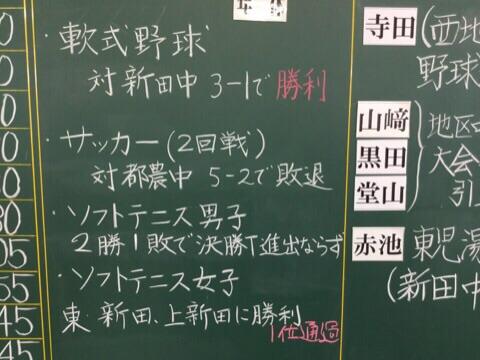 ・軟式野球
対新田中 3-1で勝利
・サッカー(2回戦)
対都農中 5-2で敗退
・ソフトテニス男子
2勝1敗で決勝T進出ならず
・ソフトテニス女子
東・新田、上新田に勝利
1位通過
寺田(西地
野球
山﨑
黒田
堂山
地区中
大会
引
赤池 東児湯
(新田中
0
0
0
0
0
30
05
55
45
45